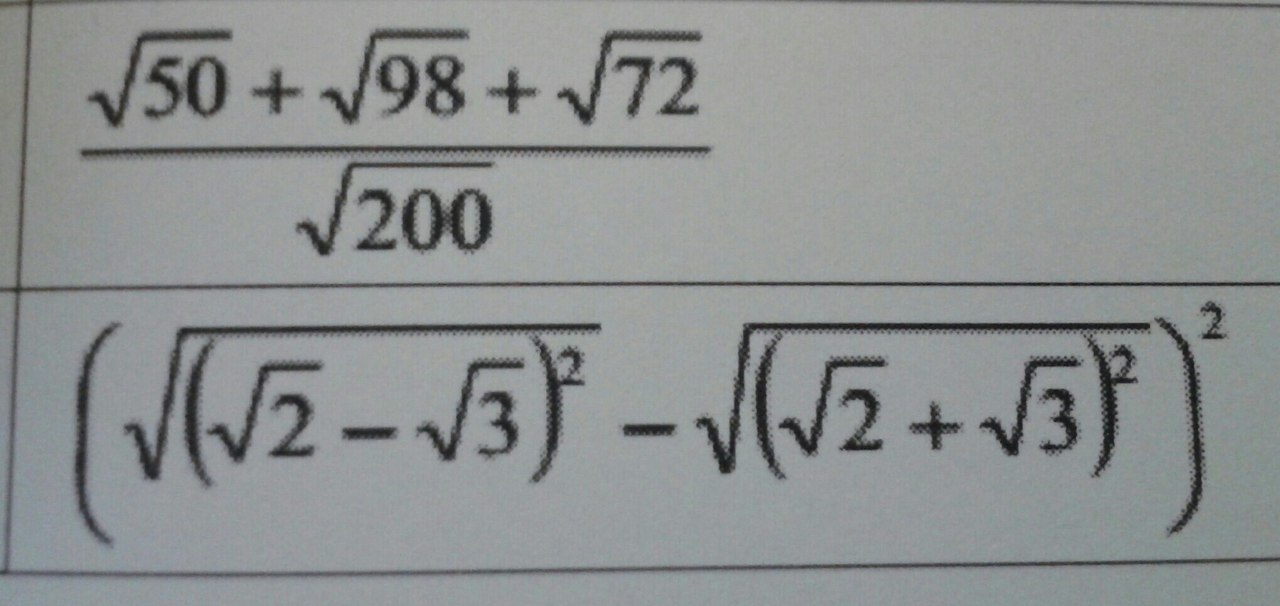 \frac{\sqrt{50} + \sqrt{98} + \sqrt{72}}{\sqrt{200}}
\left( \sqrt{\left(\sqrt{2} - \sqrt{3}\right)^2} - \sqrt{\left(\sqrt{2} + \sqrt{3}\right)^2} \right)^2